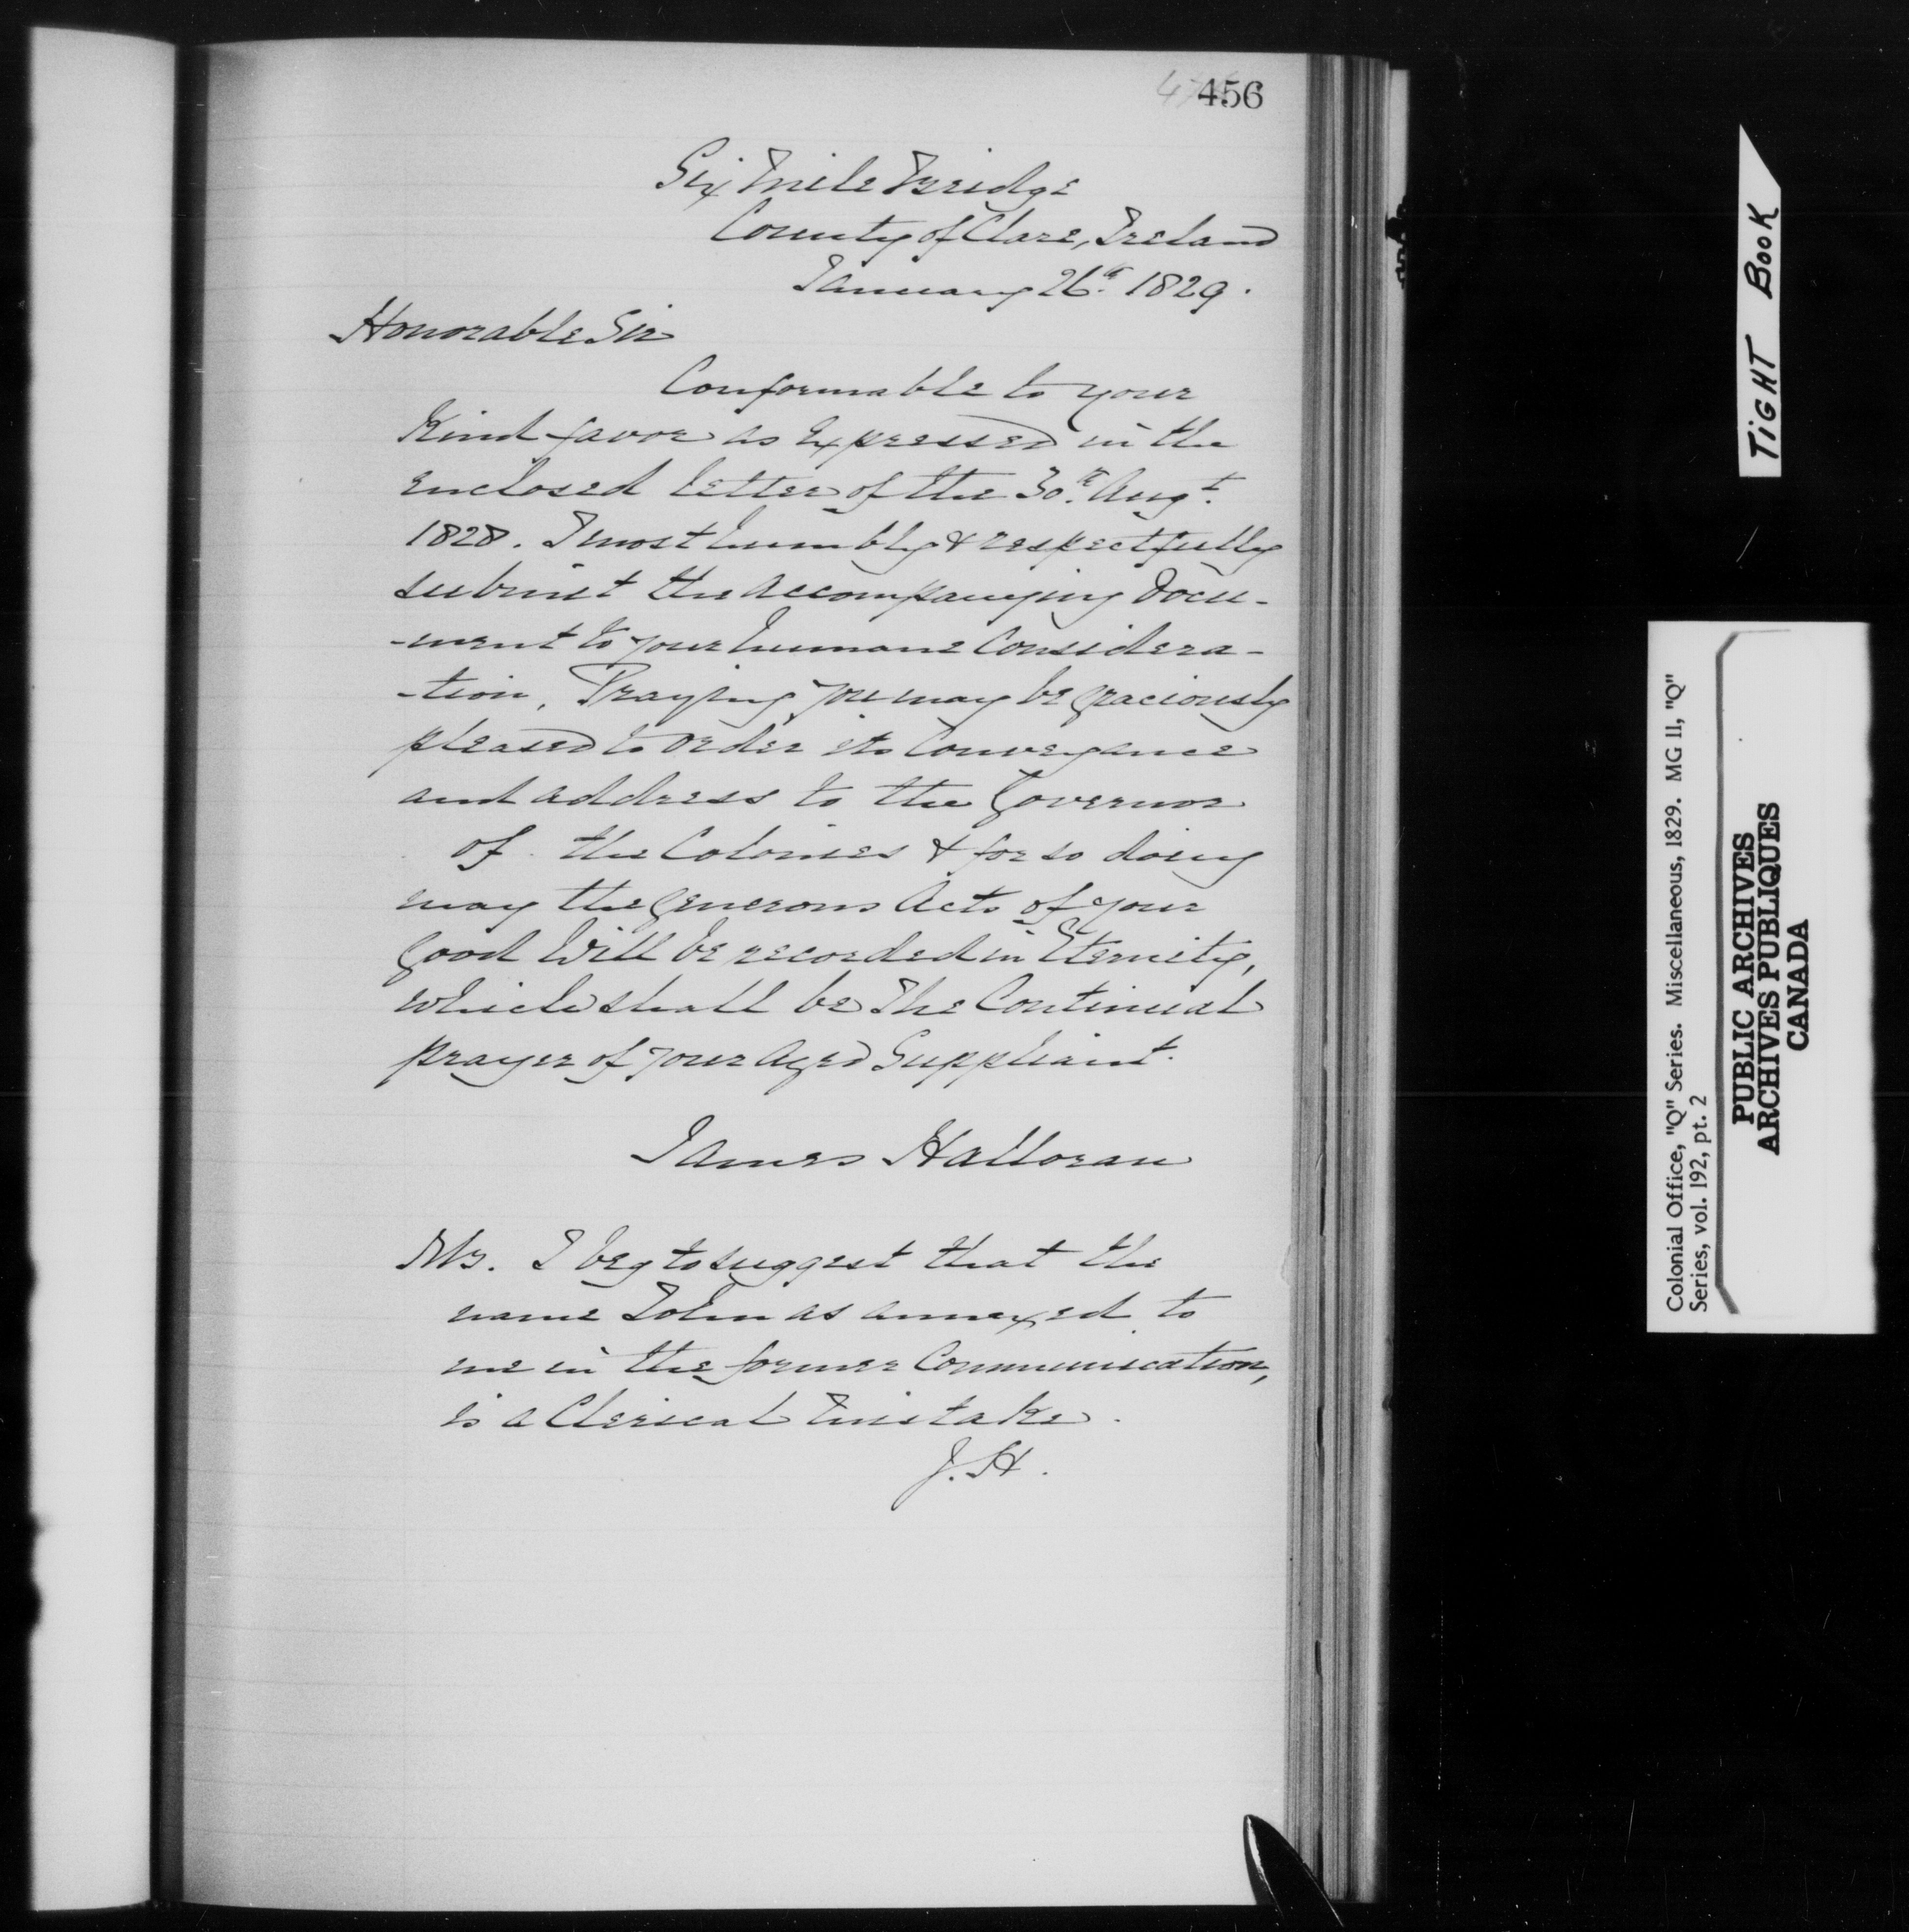 456
Six Mile Bridge
County of Clare, Ireland
January 26th 1829.
Honorable Sir
Conformable to your
Kind favor as Expressed in the
enclosed letter of the 30th Augt.
1828. I most humbly & respectfully
submit the Accompanying Docu-
-ment to your humane Considera-
-tion, Praying you may be Graciously
pleased to order its Conveyance
and address to the Governor
of the Colonies & for so doing
may the Generous Acts of your
Good Will be recorded in Eternity,
which shall be The Continual
prayer of your Aged Suppliant.
James Halloran
Nb. I beg to suggest that the
name John as annexed to
me in the former Communication,
is a Clerical Mistake.
J. H.
TIGHT BOOK
Colonial Office, "Q" Series. Miscellaneous, 1829. MG 11, "Q"
Series, vol. 192, pt. 2
PUBLIC ARCHIVES
ARCHIVES PUBLIQUES
CANADA